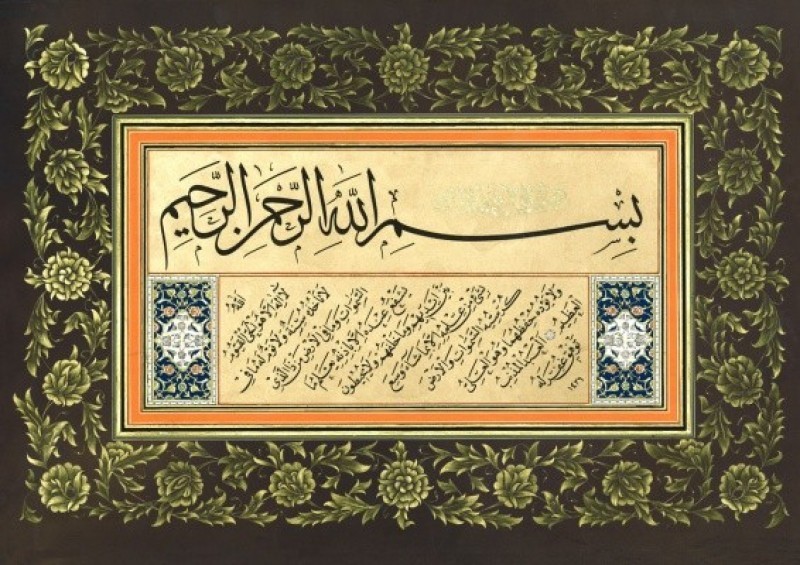 بِسْمِ اللَّهِ الرَّحْمٰنِ الرَّحِيمِ
اَللّٰهُ
لَا إِلٰهَ إِلَّا هُوَ الْحَيُّ الْقَيُّومُ
لَا تَأْخُذُهُ سِنَةٌ وَلَا نَوْمٌ لَهُ مَا فِي
السَّمٰوَاتِ وَمَا فِي الْأَرْضِ مَنْ ذَا الَّذِي
يَشْفَعُ عِنْدَهُ إِلَّا بِإِذْنِهِ يَعْلَمُ مَا
بَيْنَ أَيْدِيهِمْ وَمَا خَلْفَهُمْ وَلَا يُحِيطُونَ
بِشَيْءٍ مِنْ عِلْمِهِ إِلَّا بِمَا شَاءَ وَسِعَ
كُرْسِيُّهُ السَّمٰوَاتِ وَالْأَرْضَ
وَلَا يَؤُدُهُ حِفْظُهُمَا وَهُوَ الْعَلِيُّ
الْعَظِيمُ
المذنب
غفر له